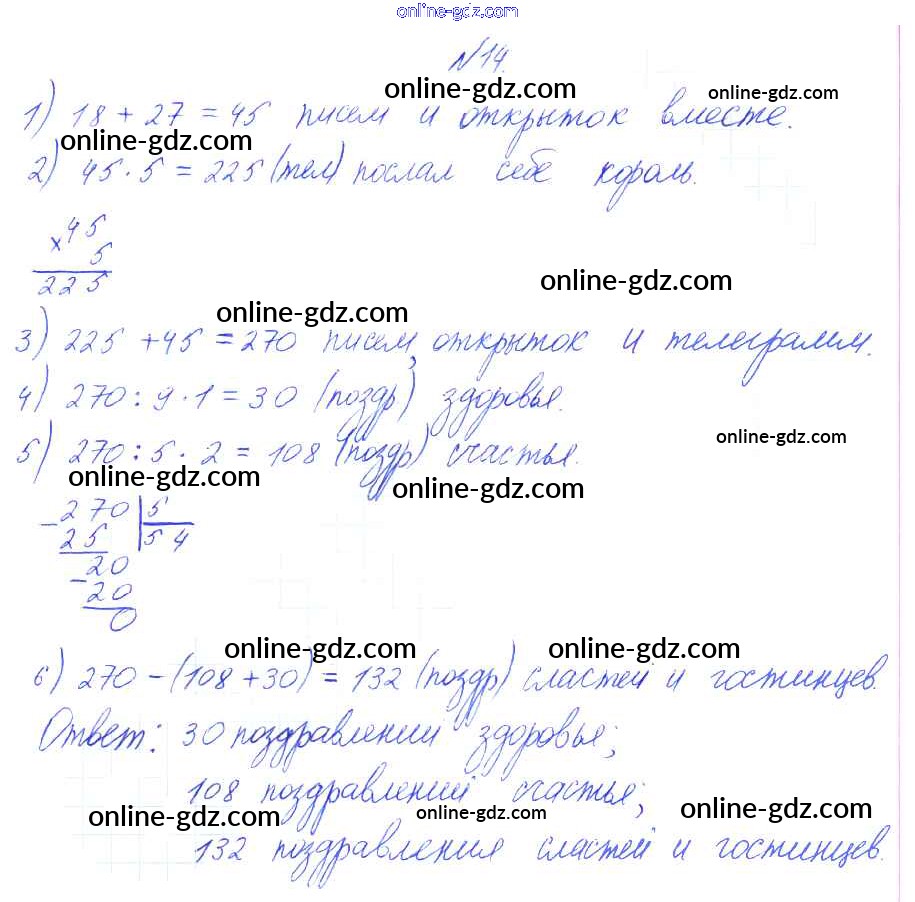 online-gdz.com
№14.
online-gdz.com
online-gdz.com
1) 18 + 27 = 45 писем и открыток вместе.
online-gdz.com
2) 45 · 5 = 225 (тел) послал себе король.
× 45
5
225
online-gdz.com
online-gdz.com
3) 225 + 45 = 270 писем, открыток и телеграмм.
4) 270 : 9 · 1 = 30 (поздр) здоровья.
online-gdz.com
5) 270 : 5 · 2 = 108 (поздр) счастья.
online-gdz.com
online-gdz.com
- 270 | 5
25 | 54
- 20
20
0
online-gdz.com
online-gdz.com
6) 270 - (108 + 30) = 132 (поздр) сластей и гостинцев.
Ответ: 30 поздравлений здоровье;
108 поздравлений счастья;
online-gdz.com
online-gdz.com
online-gdz.com
132 поздравления сластей и гостинцев.